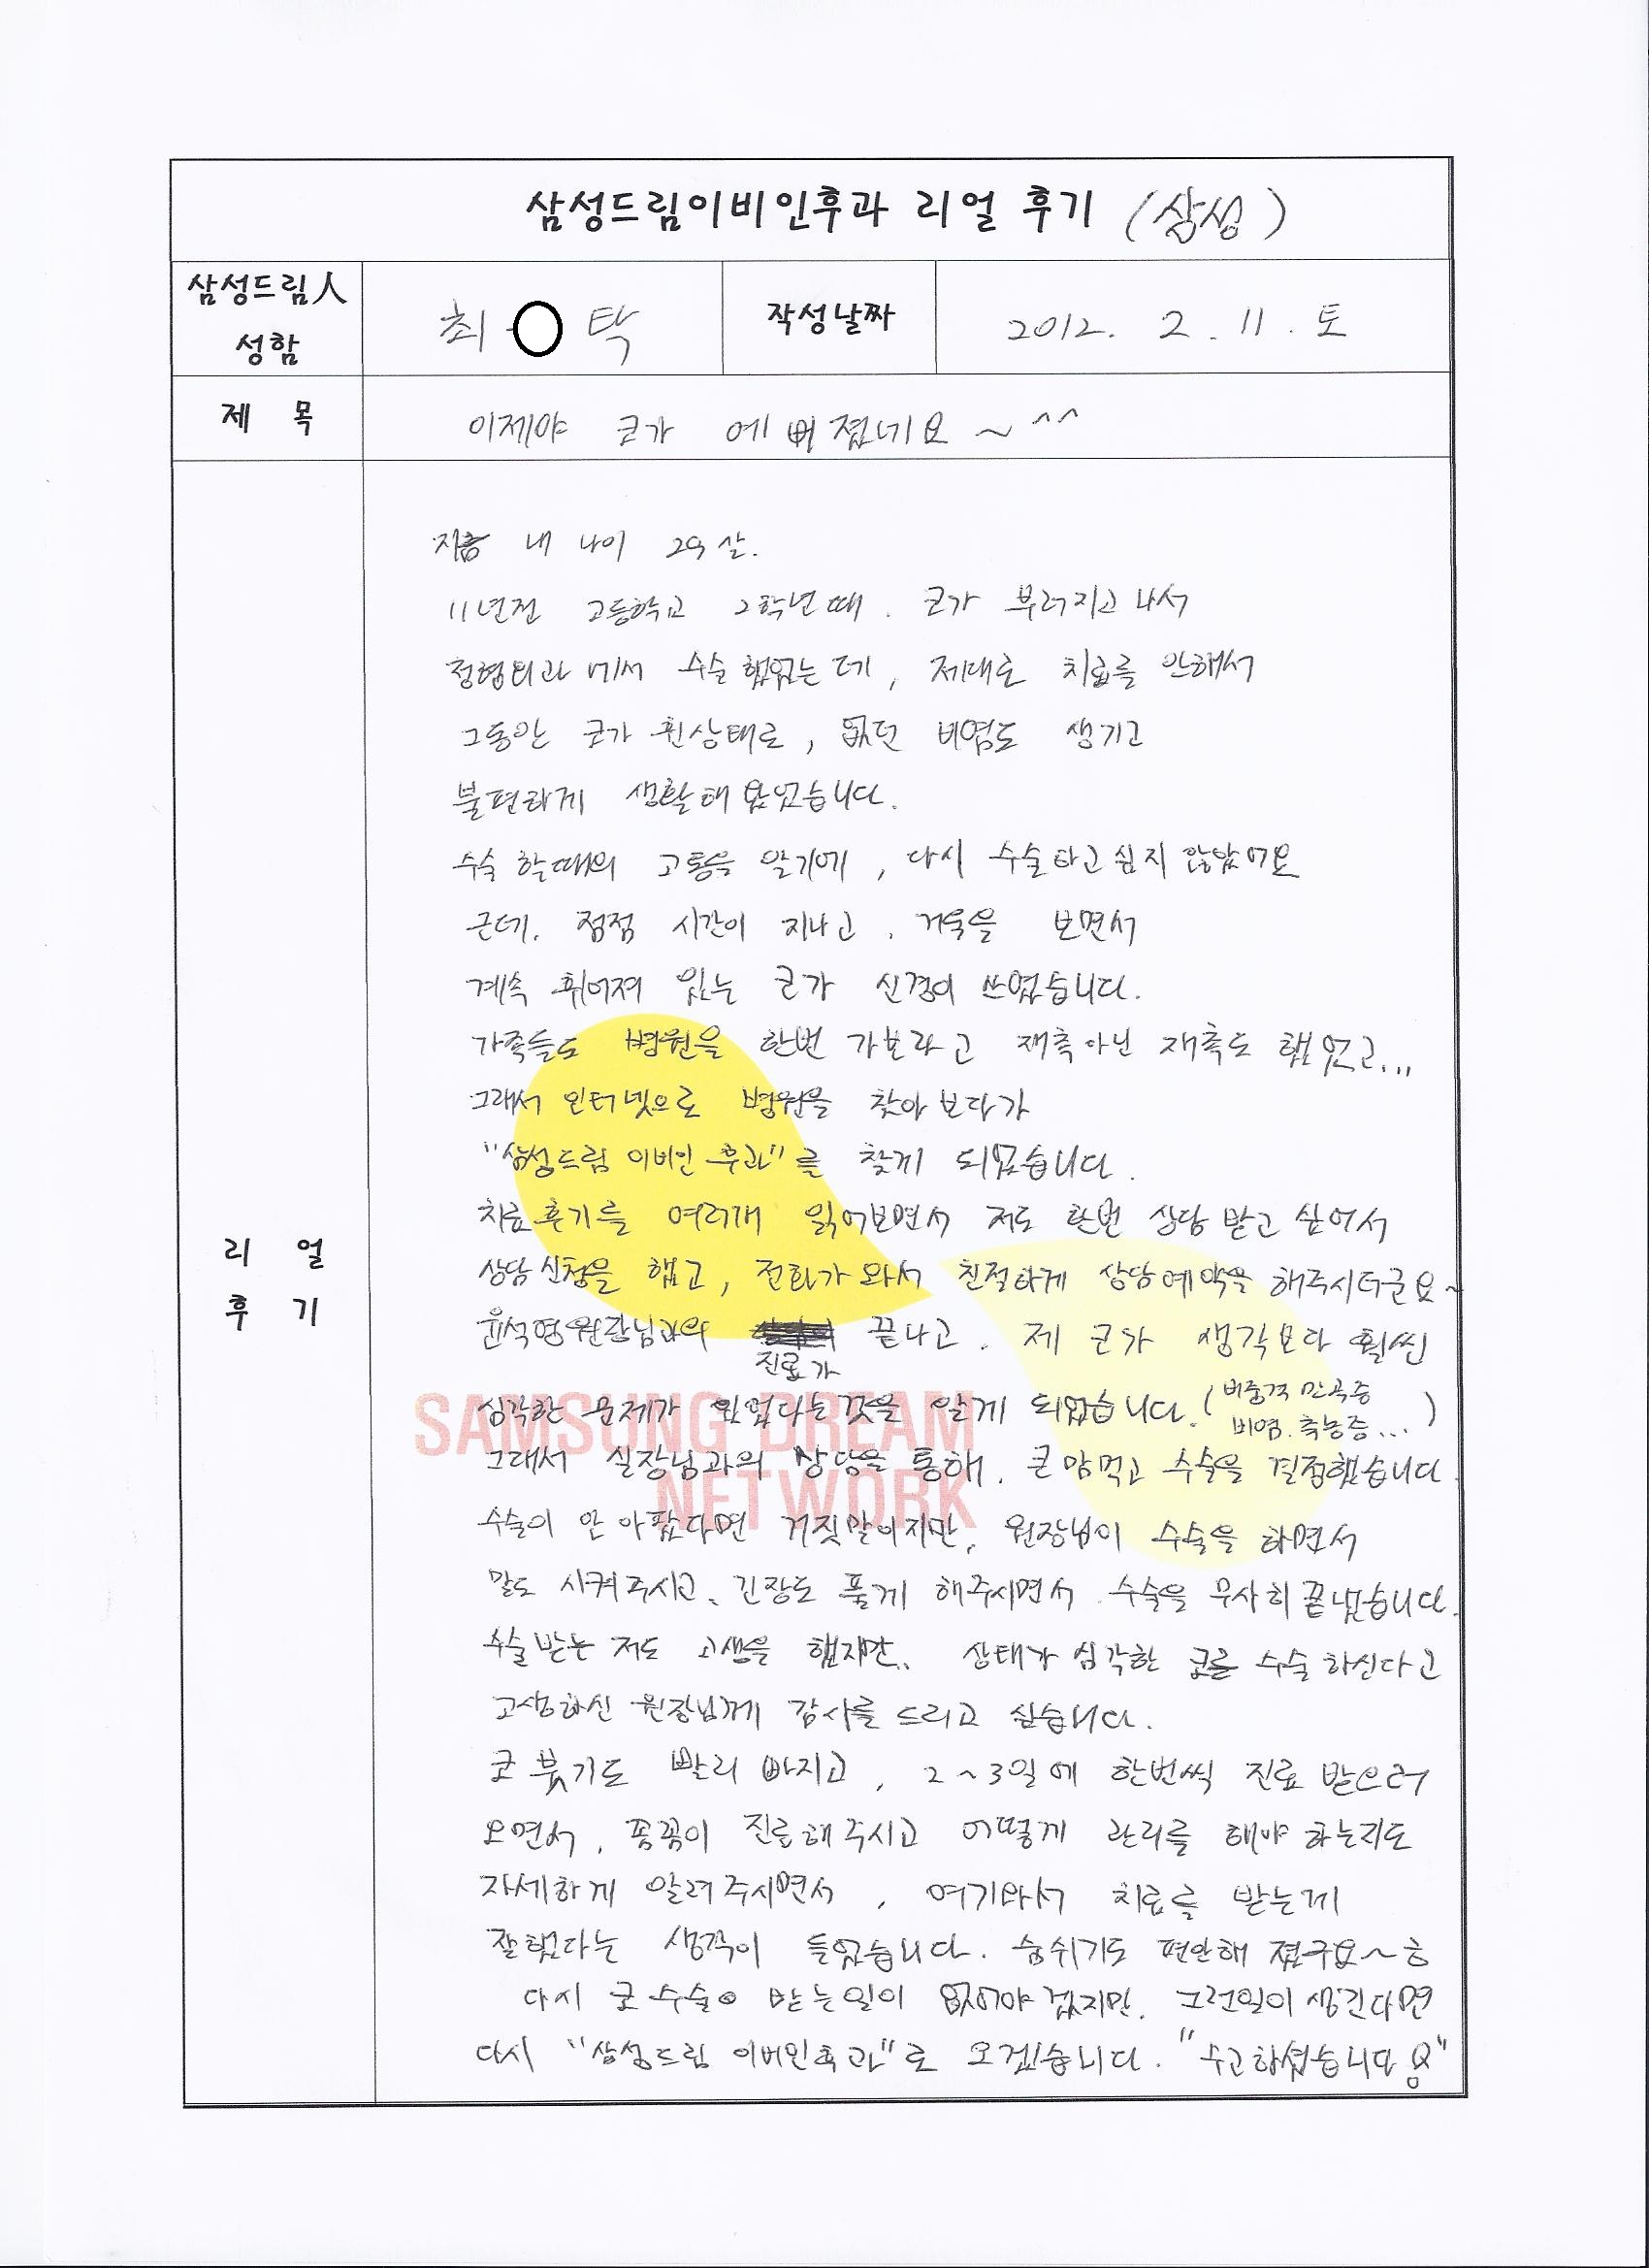 삼성드림이비인후과 리얼 후기 (삼성)
삼성드림人
성함
최 탁
작성날짜
2012. 2. 11. 토
제 목
이제야 코가 예뻐졌네요~^^
리 얼
후 기
지금 내 나이 29살.
11년전 고등학교 2학년때. 코가 부러지고 나서
정형외과에서 수술했었는데, 제대로 치료를 안해서
그동안 코가 휜상태로, 없던 비염도 생기고
불편하게 생활해 왔었습니다.
수술 할때의 고통을 알기에, 다시 수술하고 싶지 않았어요
근데. 점점 시간이 지나고. 거울을 보면서
계속 휘어져 있는 코가 신경이 쓰였습니다.
가족들도 병원을 한번 가보라고 재촉아닌 재촉도 했었고...
그래서 인터넷으로 병원을 찾아 보다가
"삼성드림 이비인후과"를 찾게 되었습니다.
치료후기를 여러개 읽어보면서 저도 한번 상담 받고 싶어서
상담신청을 했고, 전화가 와서 친절하게 상담예약을 해주시더군요~
윤석영원장님과의 진료가 끝나고. 제 코가 생각보다 훨씬
심각한 문제가 있었다는것을 알게 되었습니다.(비중격 만곡증
비염. 축농증...)
그래서 실장님과의 상담을 통해. 큰맘먹고 수술을 결정했습니다.
수술이 안 아팠다면 거짓말이지만, 원장님이 수술을 하면서
말도 시켜주시고、긴장도 풀게 해주시면서 수술을 무사히 끝냈습니다.
수술받는 저도 고생을 했지만.. 상태가 심각한 코를 수술하신다고
고생하신 원장님께 감사를 드리고 싶습니다.
코 붓기도 빨리 빠지고, 2~3일에 한번씩 진료 받으러
오면서, 꼼꼼이 진료해주시고 어떻게 관리를 해야 하는지도
자세하게 알려주시면서, 여기와서 치료를 받는게
잘했다는 생각이 들었습니다. 숨쉬기도 편안해 졌구요~ㅎ
다시 코수술이 받는일이 없어야 겠지만. 그런일이 생긴다면
다시 "삼성드림 이비인후과"로 오겠습니다. "수고하셨습니다용"
SAMSUNG DREAM
NETWORK